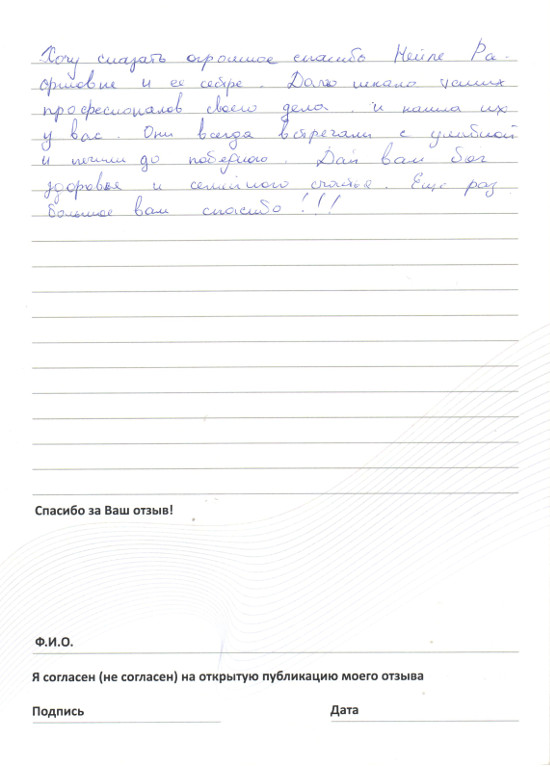 Хочу сказать огромное спасибо Нейле Ра-
и её сестре. Долго искала таких
профессионалов своего дела и нашла их
у вас. Они всегда встречали с улыбкой
и лечили до победного. Дай вам бог
здоровья и семейного счастья. Еще раз
большое вам спасибо!!!
Спасибо за Ваш отзыв!
Ф.И.О.
Я согласен (не согласен) на открытую публикацию моего отзыва
Подпись
Дата